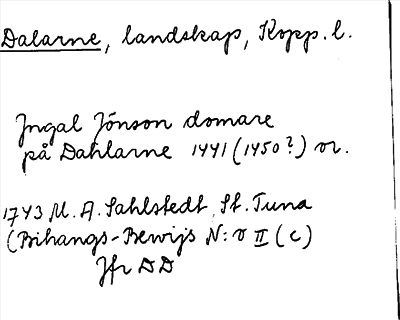 Dalarne, landskap, Kopp. l.
Jngal Jönson domare
på Dahlarne 1441 (1450?) or.
1743 M. A. Sahlstedt, St. Tuna
(Bihangs-Bewijs N:o II (c)
Jfr DD